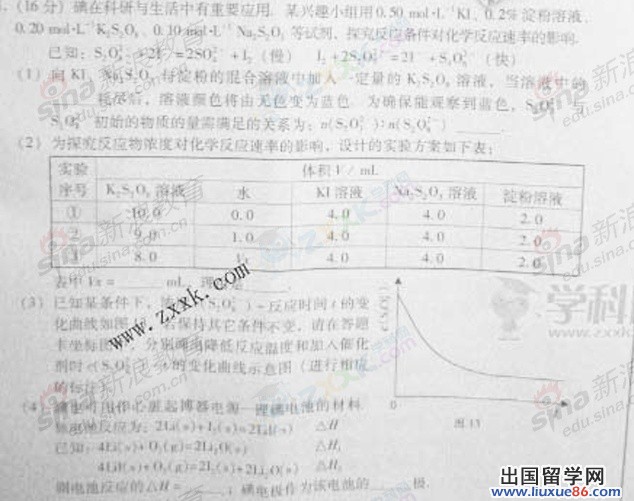 (16分)碘在科研与生活中有重要应用. 某兴趣小组用0.50 mol·L⁻¹KI、0.2%淀粉溶液、
0.20 mol·L⁻¹K₂S₂O₈、0.10 mol·L⁻¹Na₂S₂O₃等试剂, 探究反应条件对化学反应速率的影响.
已知: S₂O₈²⁻+2I⁻=2SO₄²⁻+I₂(慢) I₂+2S₂O₃²⁻=2I⁻+S₄O₆²⁻(快)
(1) 向KI、Na₂S₂O₃与淀粉的混合溶液中加入一定量的K₂S₂O₈溶液, 当溶液中的
耗尽后, 溶液颜色将由无色变为蓝色, 为确保能观察到蓝色, S₂O₃²⁻与
S₂O₈²⁻初始的物质的量需满足的关系为: n(S₂O₃²⁻):n(S₂O₈²⁻)
(2) 为探究反应物浓度对化学反应速率的影响, 设计的实验方案如下表:
实验序号 体积V/mL
K₂S₂O₈溶液 水 KI溶液 Na₂S₂O₃溶液 淀粉溶液
① 10.0 0.0 4.0 4.0 2.0
② 9.0 1.0 4.0 4.0 2.0
8.0 4.0 4.0 2.0
表中Vx= mL, 理
(3) 已知某条件下, 反应时间t的变
化曲线如图13, 若保持其它条件不变, 请在答题
卡坐标图 分别画出降低反应温度和加入催化
剂时c(S₂O₈²⁻) 的变化曲线示意图(进行相应
的标注)
c(S₂O₈²⁻)
0
t
图13
(4) 碘也可用作心脏起搏器电源—锂碘电池的材料
该电池反应为: 2Li(s)+I₂(s)=2LiI(s) ΔH
已知: 4Li(s)+O₂(g)=2Li₂O(s) ΔH₁
4LiI(s)+O₂(g)=2I₂(s)+2Li₂O(s) ΔH₂
则电池反应的ΔH= ; 碘电极作为该电池的 极.
www.zxxk.com
sina新浪教育
edu.sina.com
学科
出国留学网
www.liuxue86.com